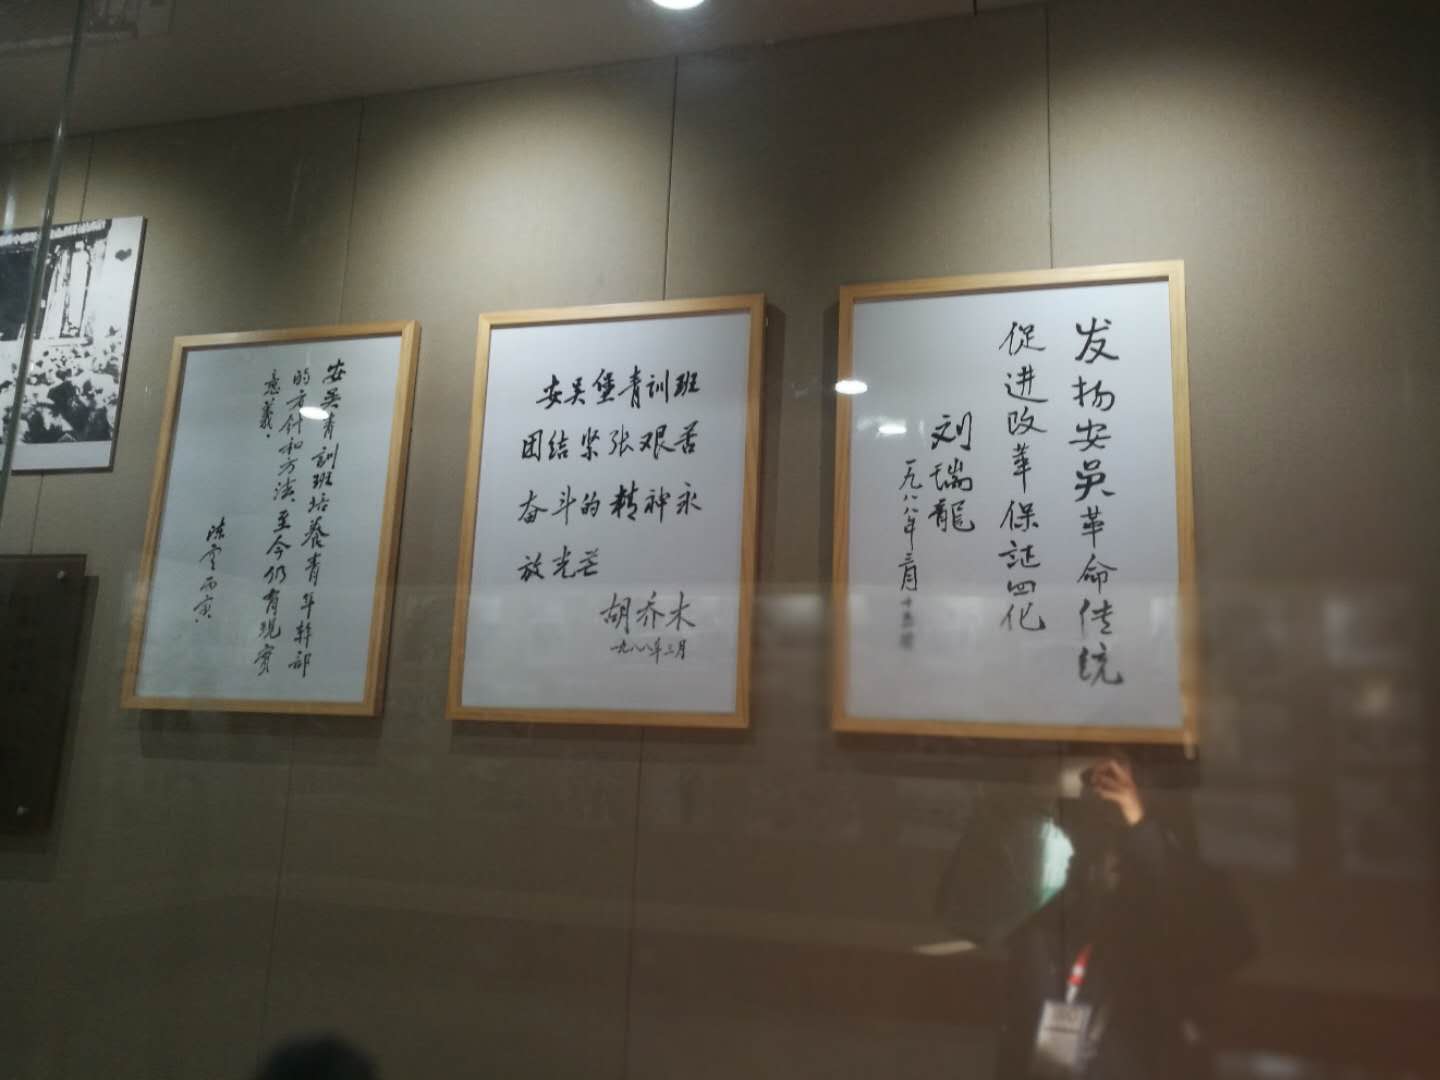 安吴青训班培养青年幹部
的方针和方法至今仍有现实
意義.
陈雲 丙寅.
安吴堡青训班
团结紧张艰苦
奋斗的精神永
放光芒
胡乔木
一九八八年三月
发扬安吴革命传统
促进改革保证四化
刘瑞龍
一九八八年三月